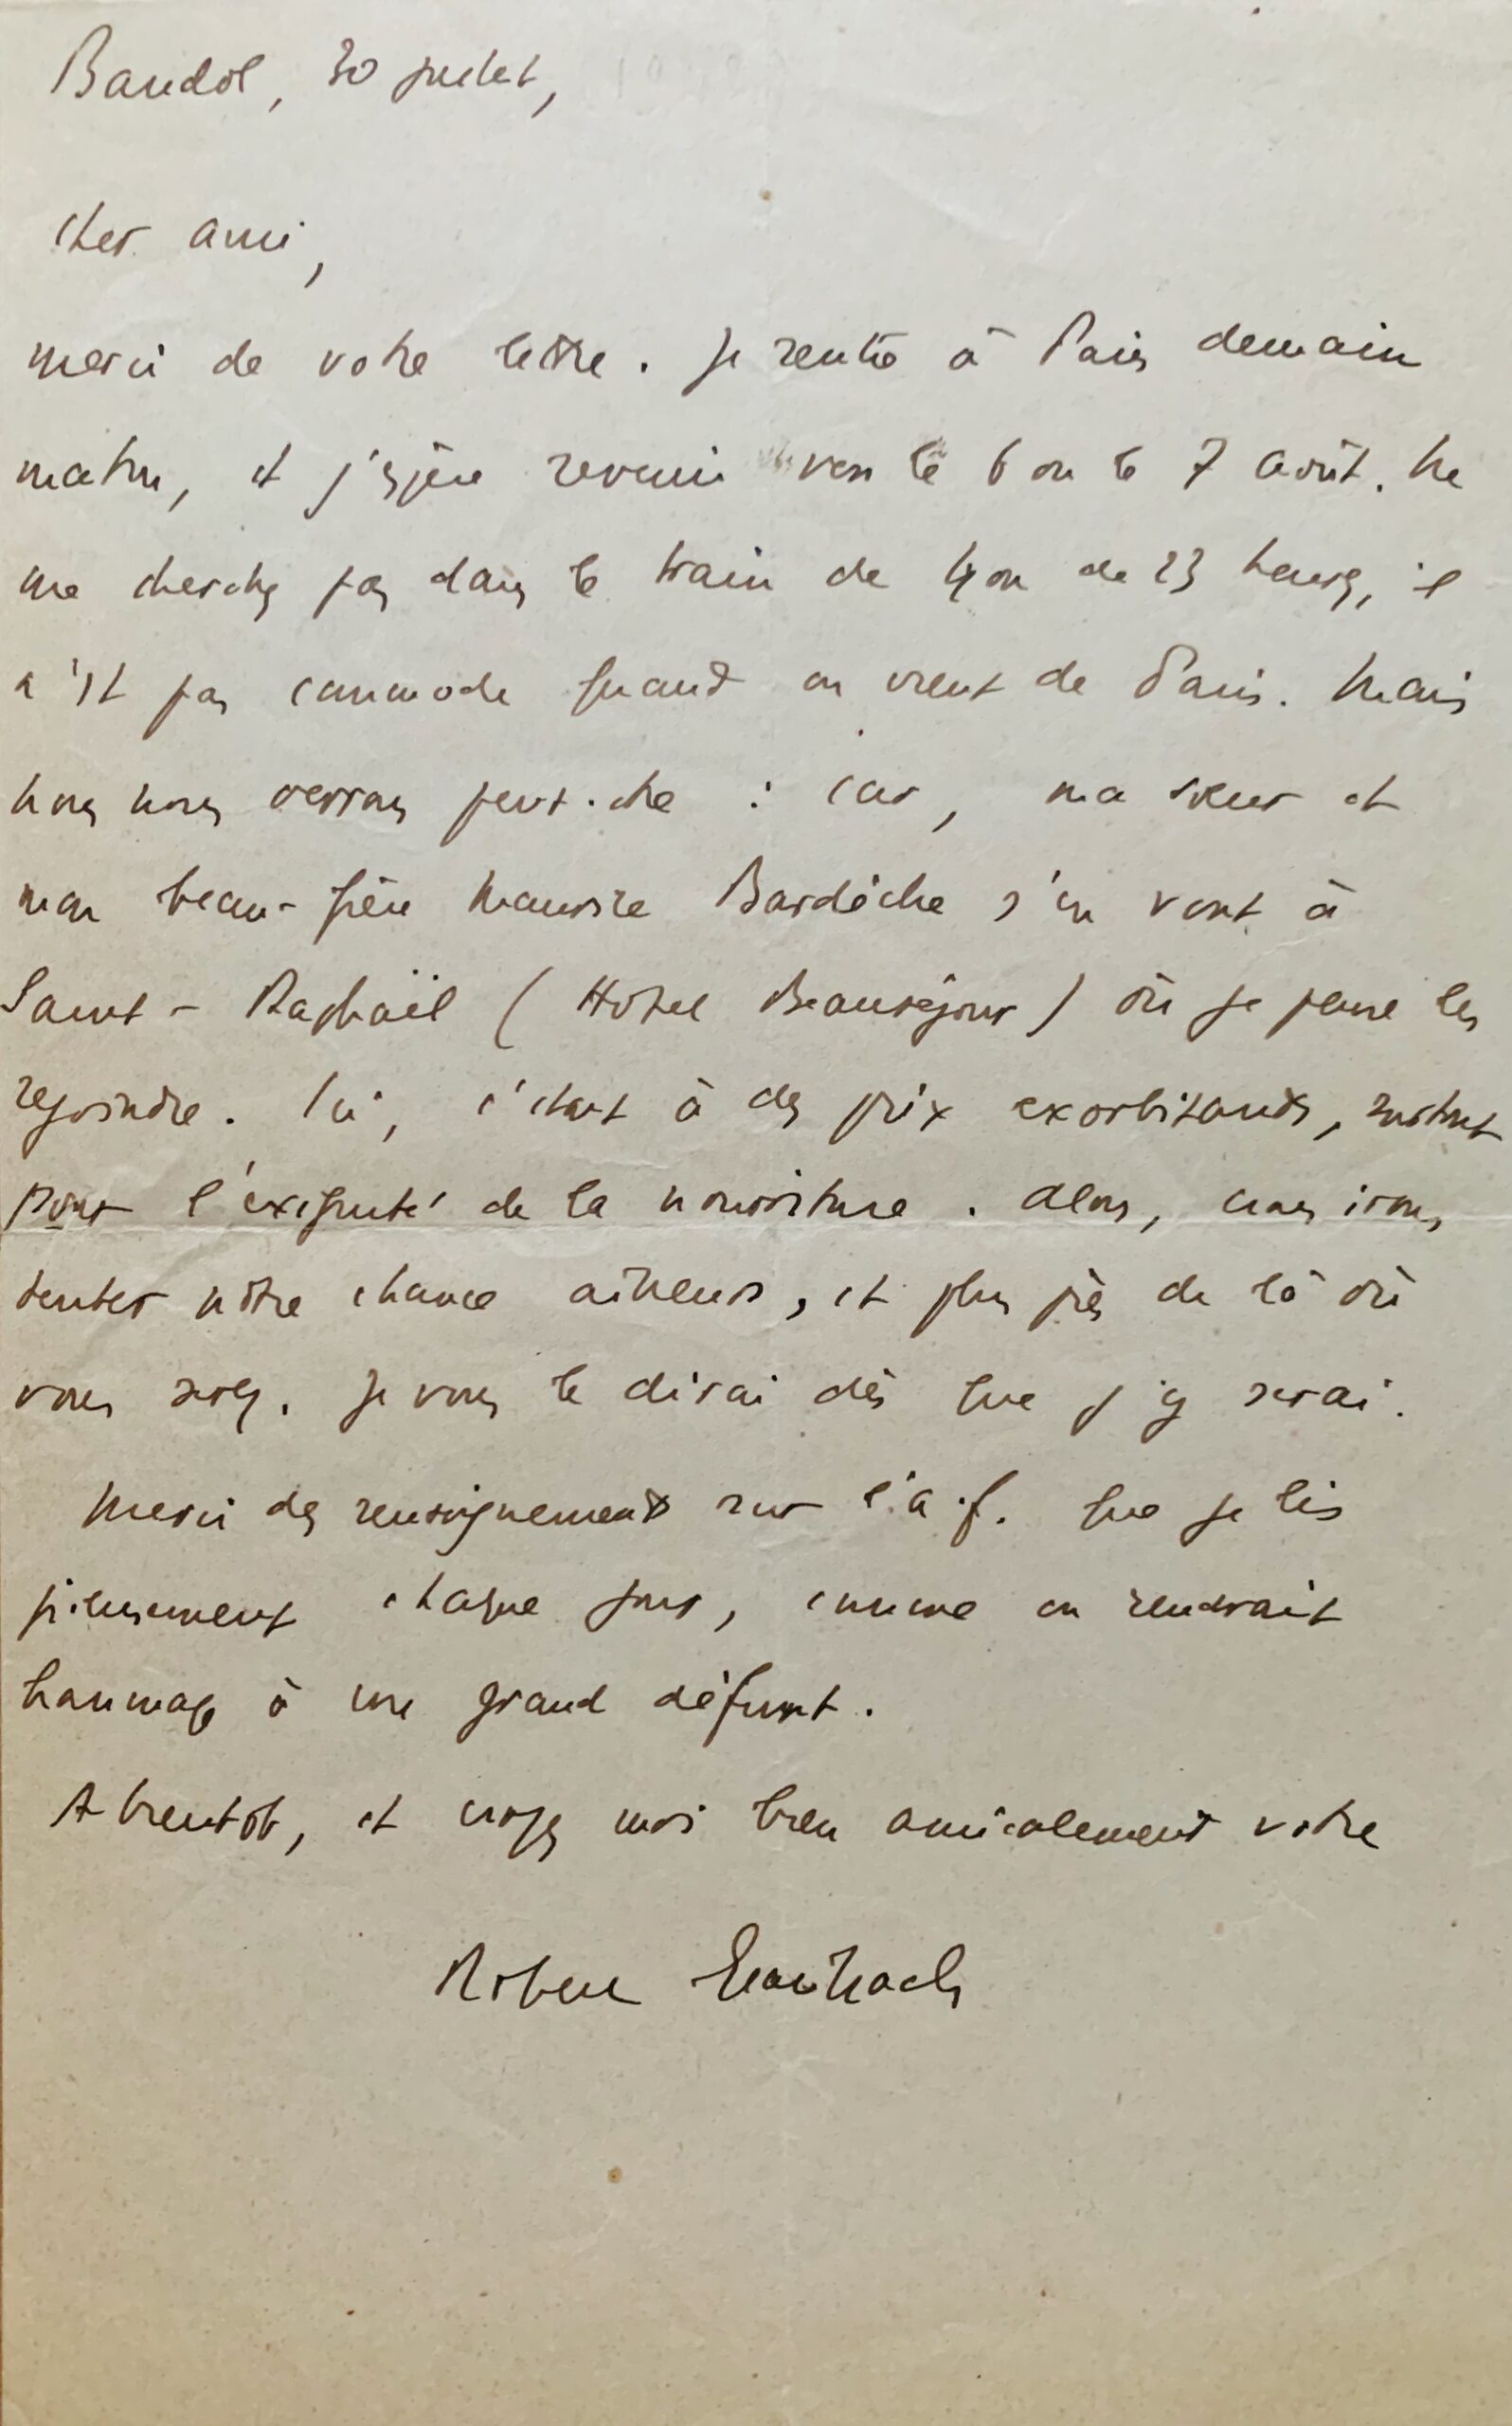 Bandol, 30 juillet,
Cher ami,
merci de votre lettre. Je rentre à Paris demain
matin, et j'espère revenir vers le 6 ou le 7 août. Ne
me cherchez pas dans le train de Lyon de 23 heures, il
n'est pas commode quand on vient de Paris. Mais
nous nous verrons peut-être : car, ma sœur et
mon beau-frère Maurice Bardèche s'en vont à
Saint-Raphaël (Hôtel Beauséjour) où je pense les
rejoindre. Ici, c'était à des prix exorbitants, surtout
pour l'exiguité de la nourriture. Alors, nous irons
tenter nôtre chance ailleurs, et plus près de là où
vous serez. Je vous le dirai dès que j'y serai.
Merci des renseignements sur l'A.F. que je lis
pieusement chaque jour, comme on rendrait
hommage à un grand défunt.
A bientôt, et croyez moi bien amicalement votre
Robert Brasillach